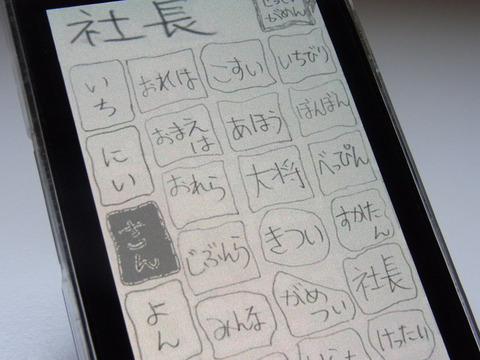 社長
いち
おれは
こすい
いちびり
にい
おまえ
は
あほう
ぼんぼん
さん
おれら
大将
べっぴん
よん
じぶんら
きつい
すかたん
みんな
がめ
つい
社長
けったい